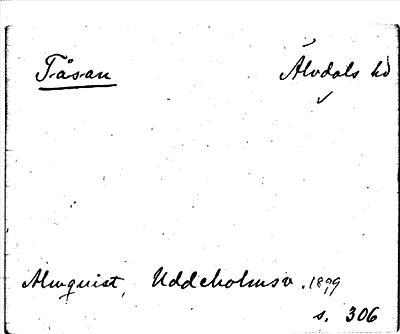 Tåsan Älvdals hd
Almquist, Uddeholmsv. 1899
s. 306